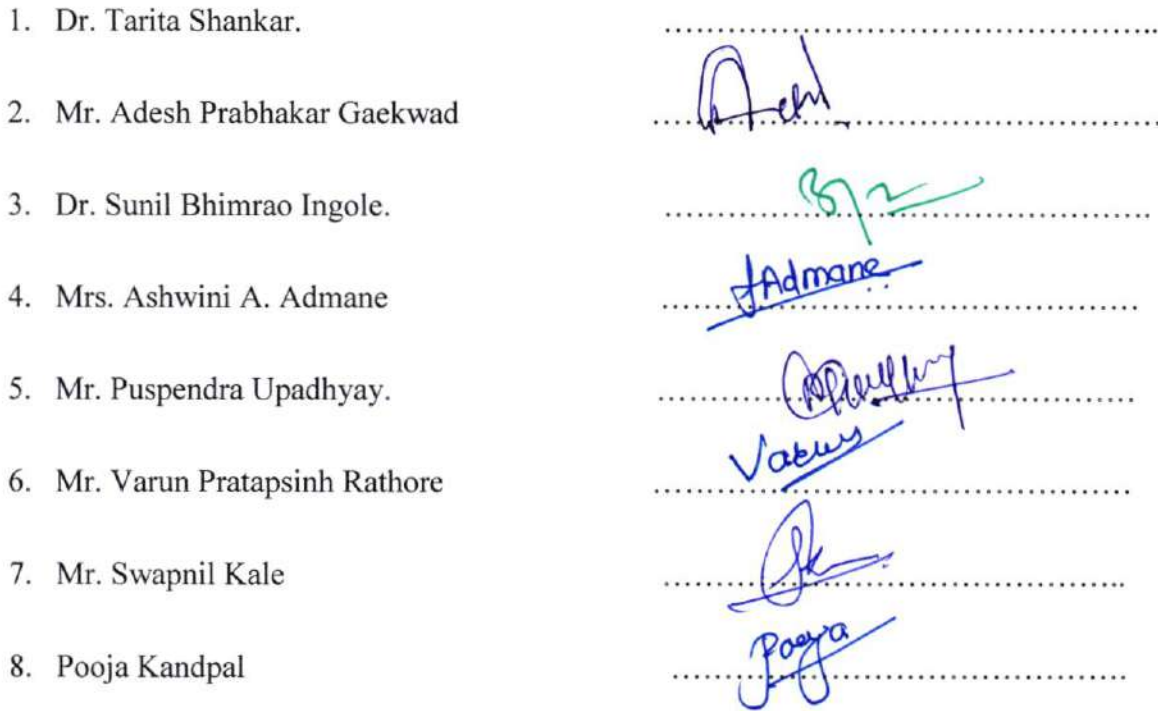 1. Dr. Tarita Shankar. ........................................................
2. Mr. Adesh Prabhakar Gaekwad ........................................................
3. Dr. Sunil Bhimrao Ingole. ........................................................
4. Mrs. Ashwini A. Admane ........................................................ Admane
5. Mr. Puspendra Upadhyay. ........................................................
6. Mr. Varun Pratapsinh Rathore ........................................................
7. Mr. Swapnil Kale ........................................................
8. Pooja Kandpal ........................................................ Pooja